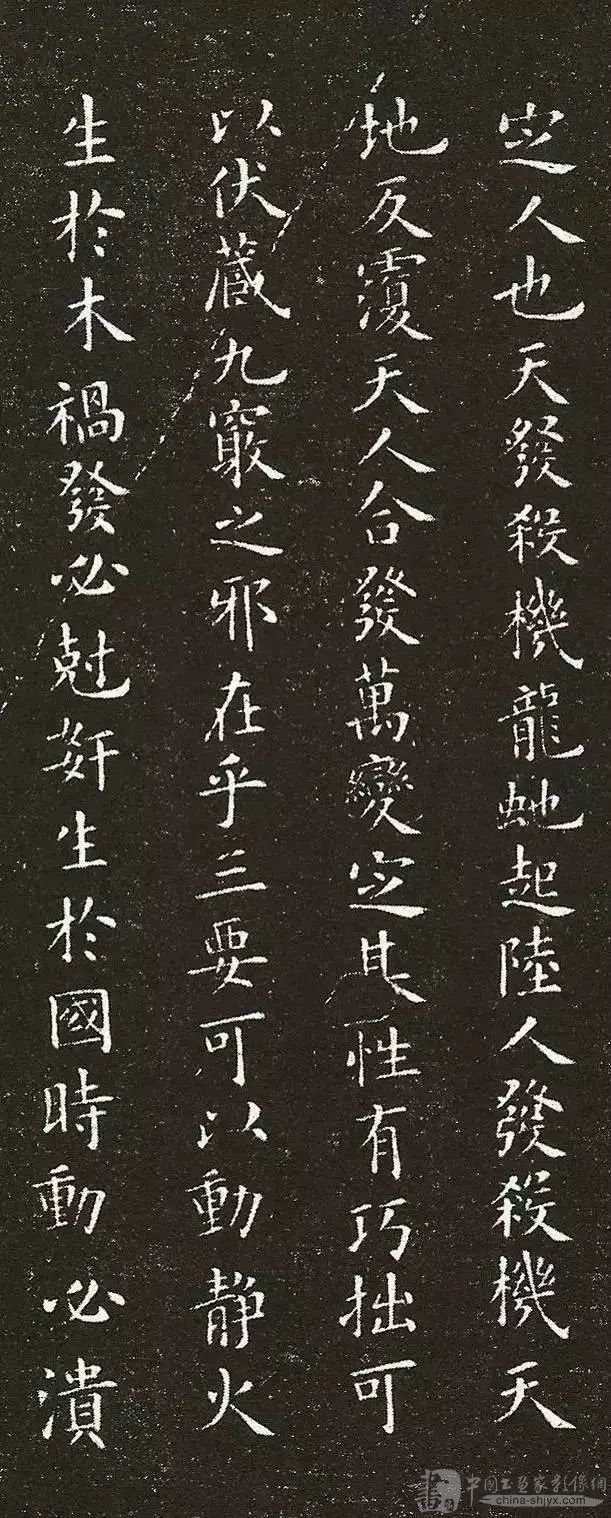 定人也天發殺機龍虵起陸人發殺機天
地反覆天人合發萬變定其性有巧拙可
以伏藏九竅之邪在乎三要可以動静火
生於木禍發必尅姧生於國時動必潰
中国书画家影像網
china-shjyx.com